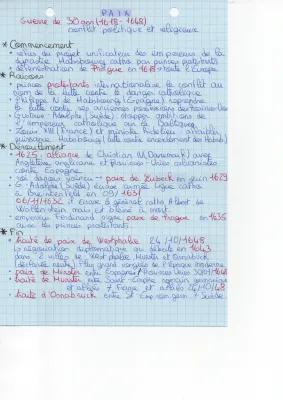 PAIX
Guerre de 30 ans (1618-1648)
conflit politique et religieux
* Commencement
- refus du projet unificateur des empereurs de la
dynastie Habsbourg cathos par princes protestants
- défenestration de Prague en 1618 → toute l'Europe
* Raisons
- princes protestants internationalise le conflit au
nom de la lutte contre le danger catholique
- Philippe IV de Habsbourg (Espagne) reprendre
la lutte contre ses anciennes possessions des Provinces-Unies
- Gustave-Adolphe (Suède) stopper ambitions de
l'empereur catholique sur la Baltique
- Louis XIII (France) et ministre Richelieu affaiblir
puissance Habsbourg (lutte contre encerclement des Habsb)
* Déroulement
- 1625 : alliance de Christian IV (Danemark) avec
Angleterre anglicane et Provinces-Unies calvinistes
contre Espagne
- roi danois vaincu → paix de Lübeck en juin 1629
- G. Adolphe (Suède) écrase armée ligue catho
à Breitenfeld en 09/1631
06/11/1632 il écrase à général catho Albert de
Wallenstein mais est blessé à mort
- empereur Ferdinand signe paix de Prague en 1635
avec les princes protestants
* Fin
- traité de paix de Westphalie 24/10/1648
→ négociation diplomatique au début en 1643
dans 2 villes de Westphalie, Munster et Osnabrück
(déclarée neutre). Plus grand congrès de l'époque moderne
- paix de Munster entre Espagne / Provinces Unies 30/01/1648
- traité de Munster entre Saint-Empire romain germanique
et alliés + France et alliés 24/10/48
- traité d'Osnabrück entre St Emp rom germ + Suède